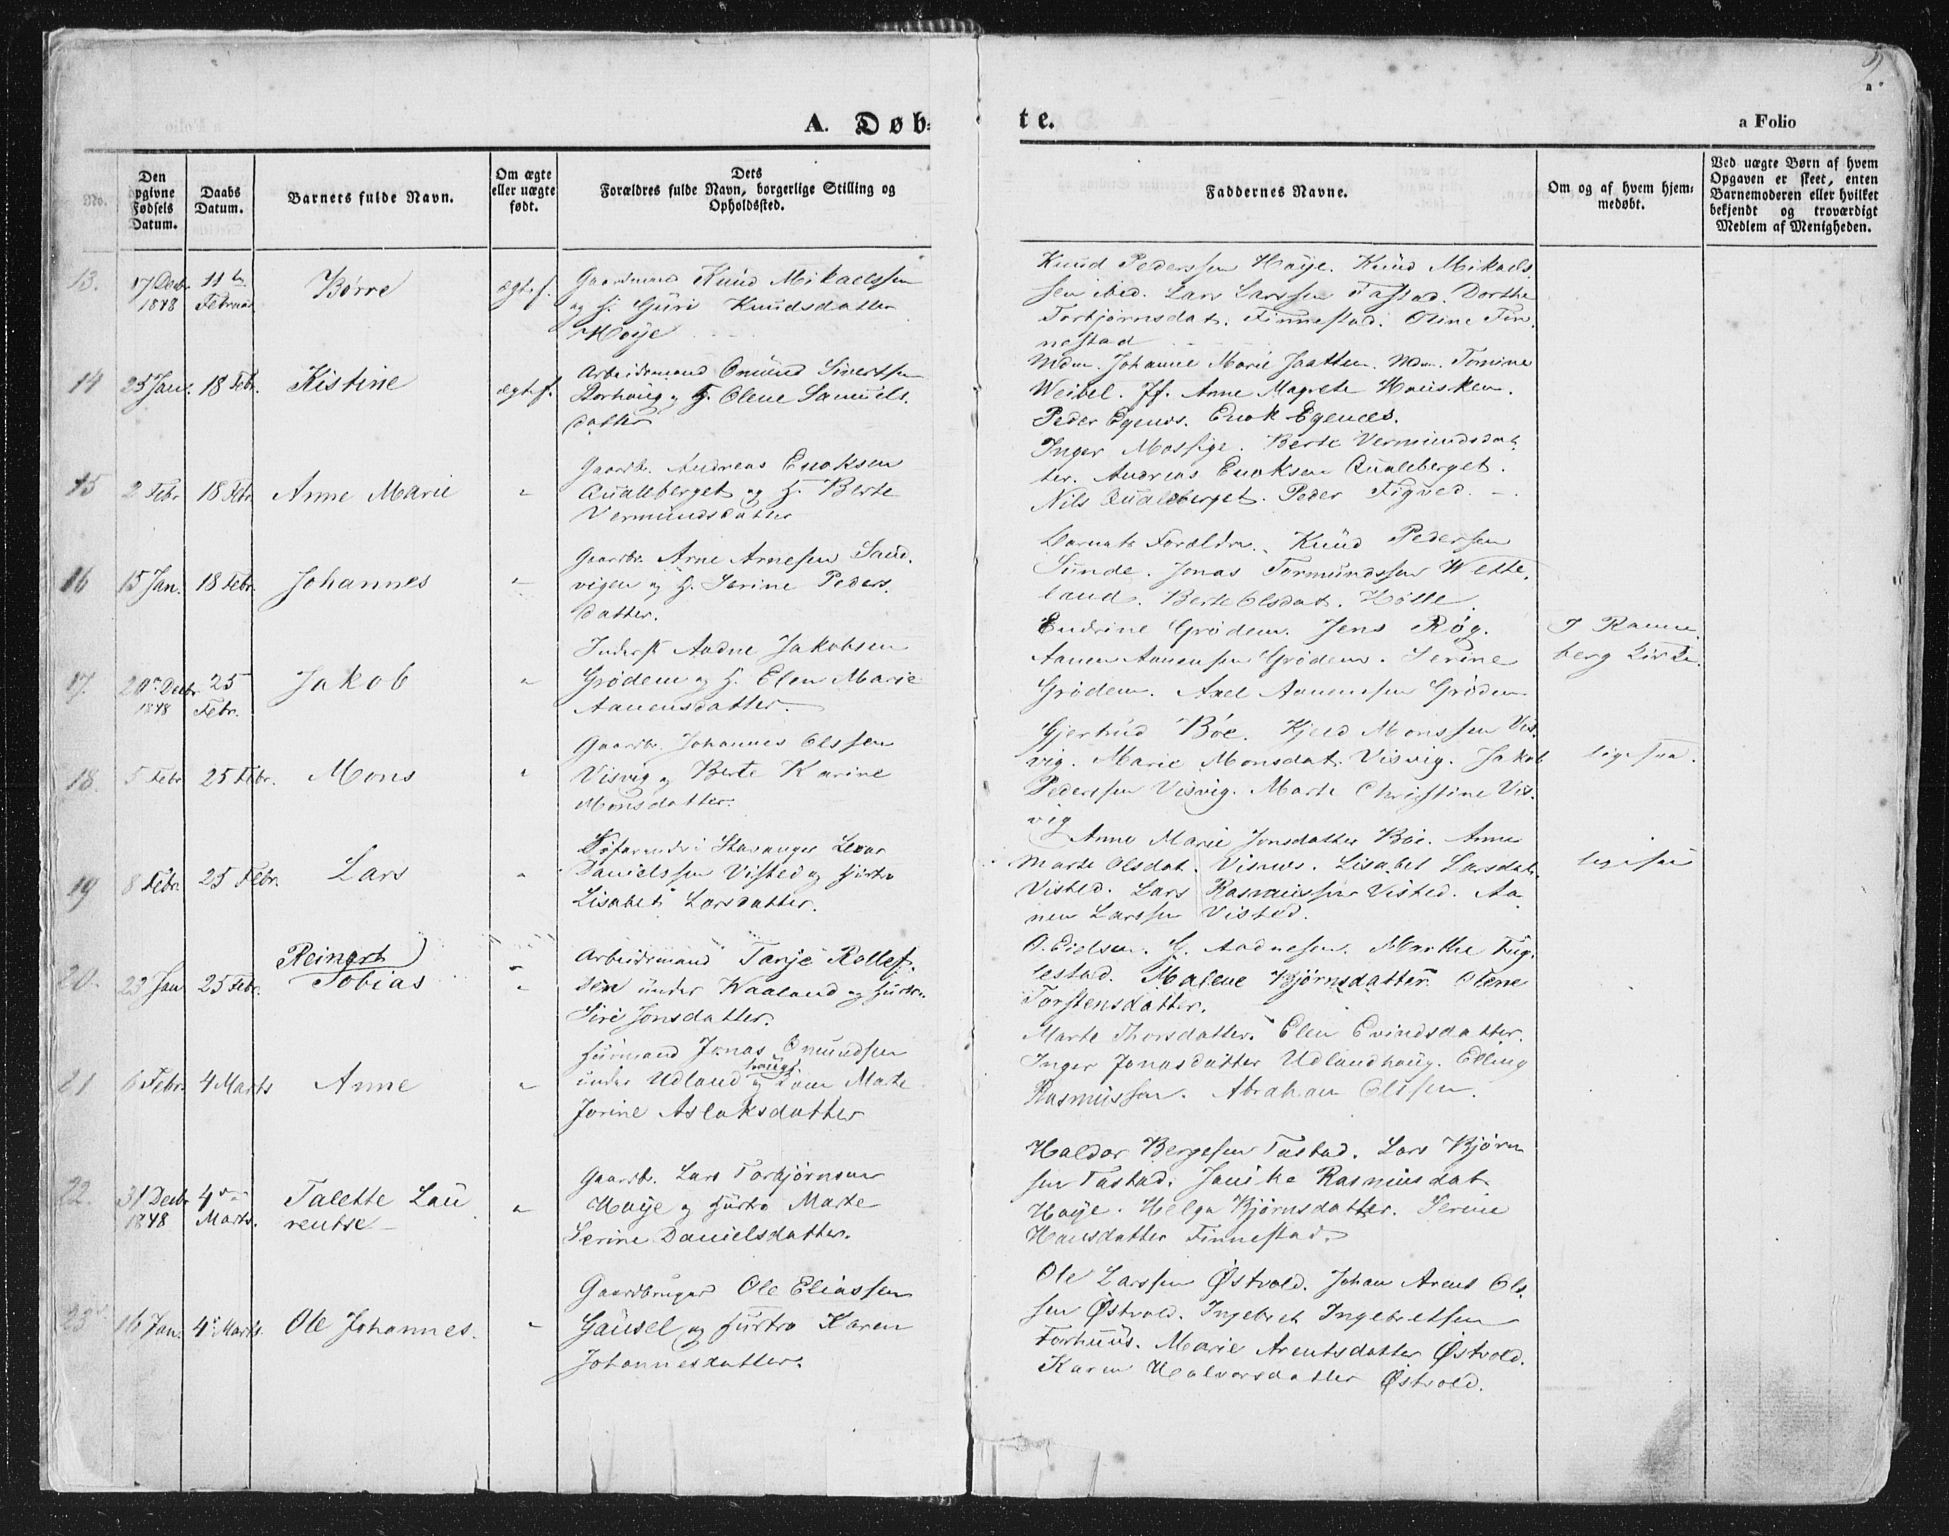 A. Døb-
te.
a Folio
No.
Den opgivne Fødsels Datum.
Daabs Datum.
Barnets fulde Navn.
Om ægte eller uægte født.
Dets Forældres fulde Navn, borgerlige Stilling og Opholdssted.
Faddernes Navne.
Om og af hvem hjemmedøbt.
Ved uægte Børn af hvem Opgaven er skeet, enten Barnemoderen eller hvilket bekjendt og troværdigt Medlem af Menigheden.
13. 17 Decbr. 1848 11te Februar Børre ægte f.
Gaardmand Knud Mikaelssen
og H. Guri Knudsdatter
Høije
Knud Pederssen Høije. Knud Mikaels-
sen ibid. Lars Larssen Tastad. Dorthe
Torbjørnsdat. Finnestad. Oline Fin-
nestad
14 25 Jan. 18 Febr. Kistine ægte f.
Arbeidsmand Omund Sivertsen
og H. Olene Samuels-
datter
Mdm. Johanne Marie Jaatten. Mdm. Tomine
Weibel. Jf. Anne Magrete Hausken.
Peder Egenes. Enok Egenes.
15 2 Febr 18 Febr Anne Marie "
Gaardbr. Andreas Enoksen
Qualeberget og H. Berte
Vermundsdatter
Inger Mossige. Berte Vermundsdat-
ter. Andreas Enoksen Qualeberget.
Nils Qualeberget. Peder Figved.
16 15 Jan. 18 Febr. Johannes "
Gaardbr. Arne Arnesen Sand-
vigen og H. Serine Peders-
datter.
Barnets Forældre. Knud Pedersen
Sunde. Jonas Tormundssen Wette-
land. Berte Olsdat.
17. 20de Decbr 1848 25 Febr. Jakob "
Inderst Aadne Jakobsen
Grødem og H. Elen Marie
Aanensdatter.
Endrine Grødem. Jens Røg.
Aanen Aanensen Grødem. Serine
Grødem. Axel Aanensen Grødem
I Ranne-
berg Kirke.
18. 5 Febr 25 Febr. Mons "
Gaardbr. Johannes Olssen
Visvig og Berte Karine
Monsdatter.
Gjertrud Bøe. Kjeld Monssen Vis-
vig. Marie Monsdat. Visvig. Jakob
Pederssen Visvig. Marte Christine Vis-
vig
ligesaa.
19 8 Febr. 25 Febr. Lars "
Søfarende i Stavanger
Danielssen Visted og Hustro
Lisabet Larsdatter.
Anne Marie Jonsdatter Bøe. Anne
Marte Olsdat. Visnes. Lisabet Larsdat.
Visted. Lars Rasmussen Visted. Aa-
nen Larssen Visted.
ligesaa
20. 23 Jan 25 Febr. Reinert Tobias "
Arbeidsmand Tønje Rollef-
sen under Waaland og Hustro
Siri Jonsdatter.
O. Eielsen. Aadnesen. Marthe Fug-
lestad. Malene Bjørnsdatter Olene
Torstensdatter.
21 6 Febr. 4 Marts Anne "
Huusmand Jonas Omundsen
under Udland
haug
og Marte
Jorine Aslaksdatter
Marte Thorsdatter. Elen Evindsdatter.
Inger Jonasdatter Udlandhaug. Elling
Rasmussen. Abraham Olssen.
22. 31 Decbr 1848 4de Marts. Talette Lau-
rentse "
Gaardbr. Lars Torbjørnsen
Høije og Hustro Marte
Serine Danielsdatter.
Haldor Bergesen Tastad. Lars Bjørn-
sen Tastad. Janike Rasmusdat.
Høije. Helga Bjørnsdatter. Serine
Hansdatter Finnestad.
23 16 Jan. 4 Marts. Ole Johannes. "
Gaardbruger Ole Eliassen
Gausel og Hustro Karen
Johannesdatter.
Ole Larssen Østvold. Johan Arent Ols-
sen Østvold. Ingebret Ingebretsen
Forhuus. Marie Arentsdatter Østvold.
Karen Halvorsdatter Østvold.